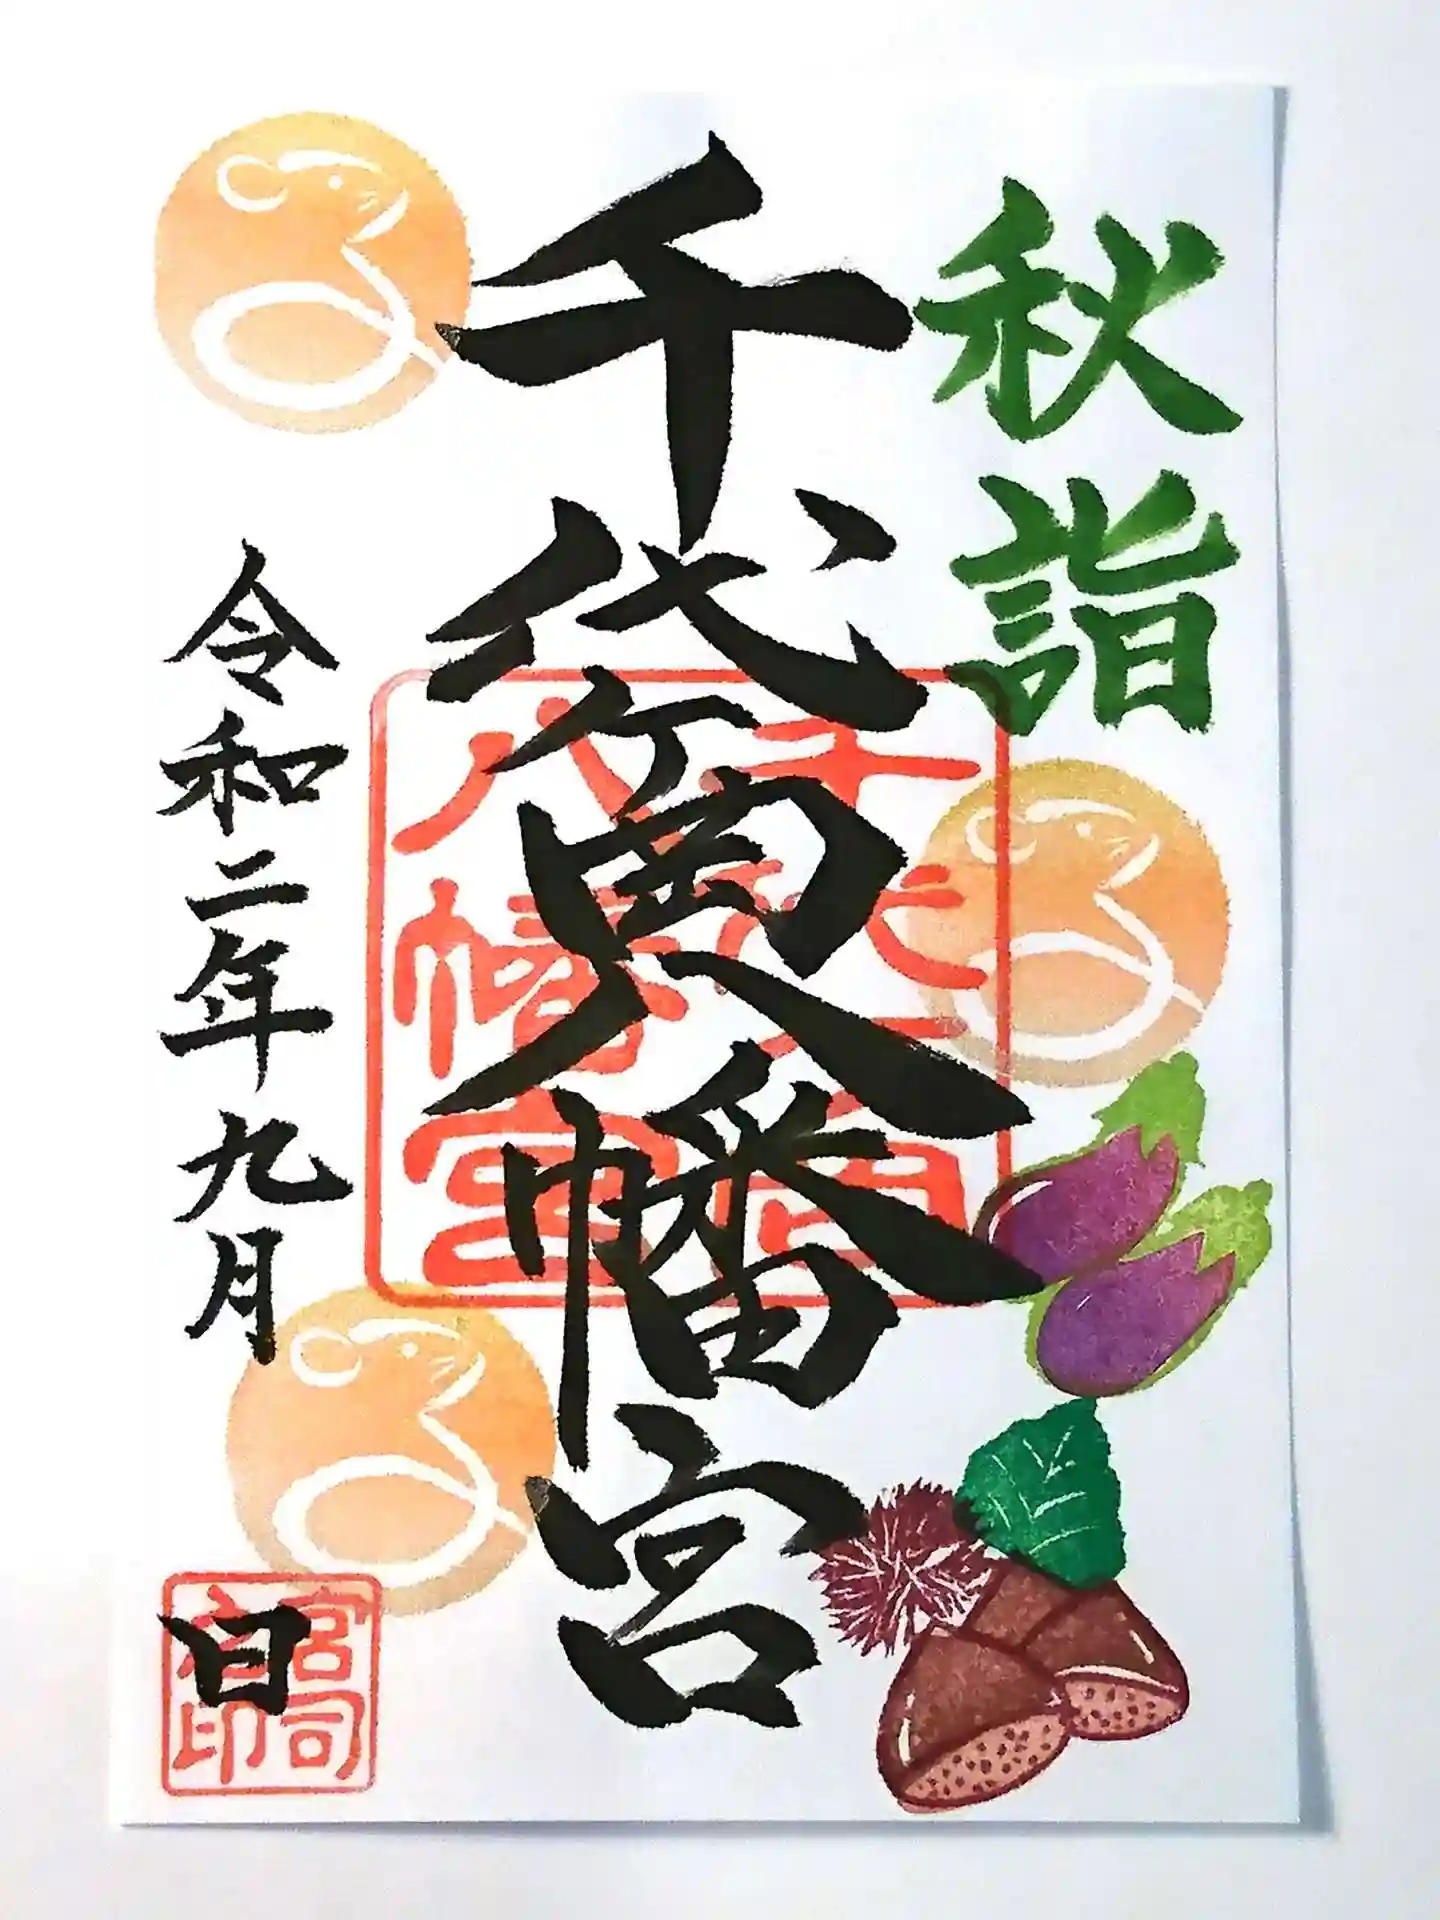 秋詣
千代ヶ岡八幡宮
八幡宮
令和二年九月
日
宮司
印